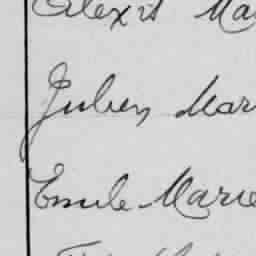 Alexis Ma
Julien Mar
Emile Marie